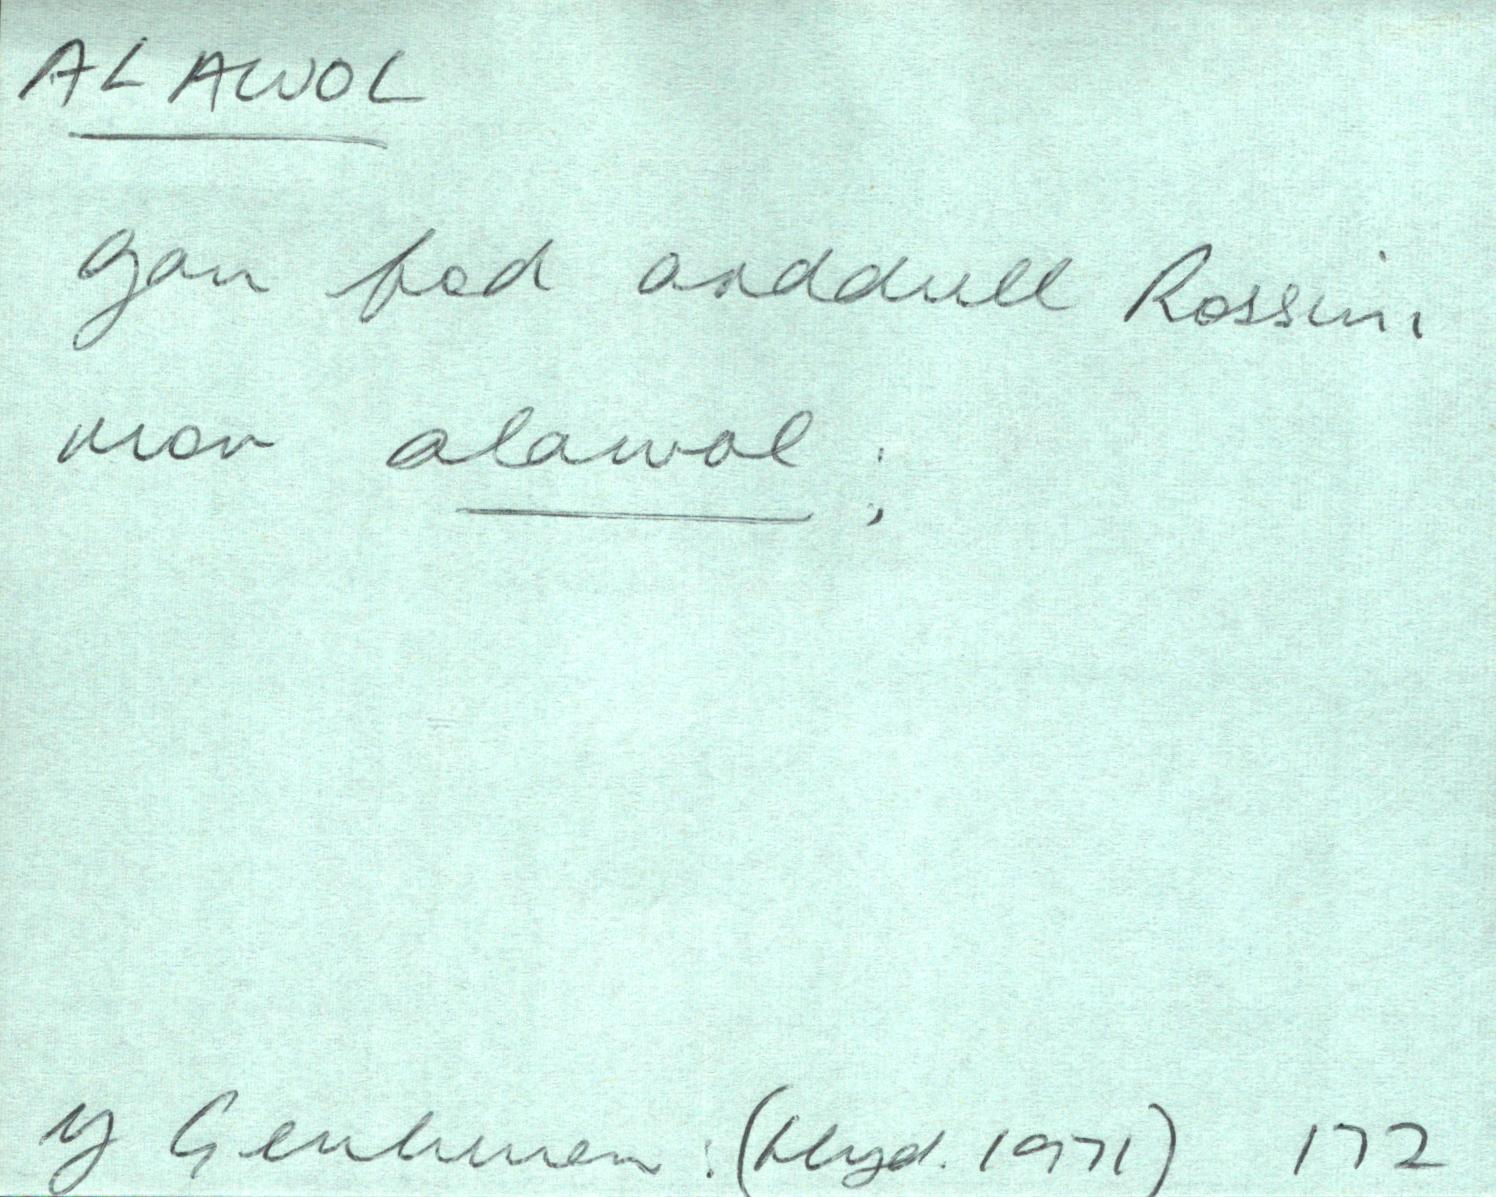 ALAWOL
gan fod arddull Rossini
mor alawol;
Y Genhinen : (Hyd. 1971) 172